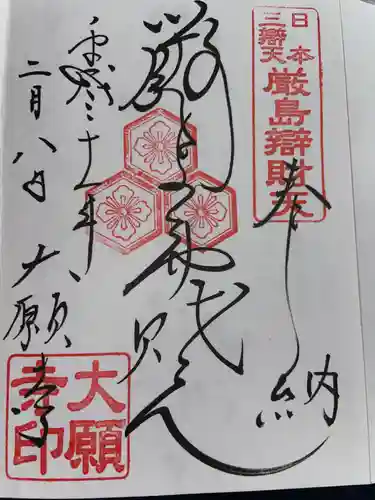 奉納
日本三辯天
厳島辯財天
厳島辯財天
平成三十一年
二月八日
大願寺
大願寺印